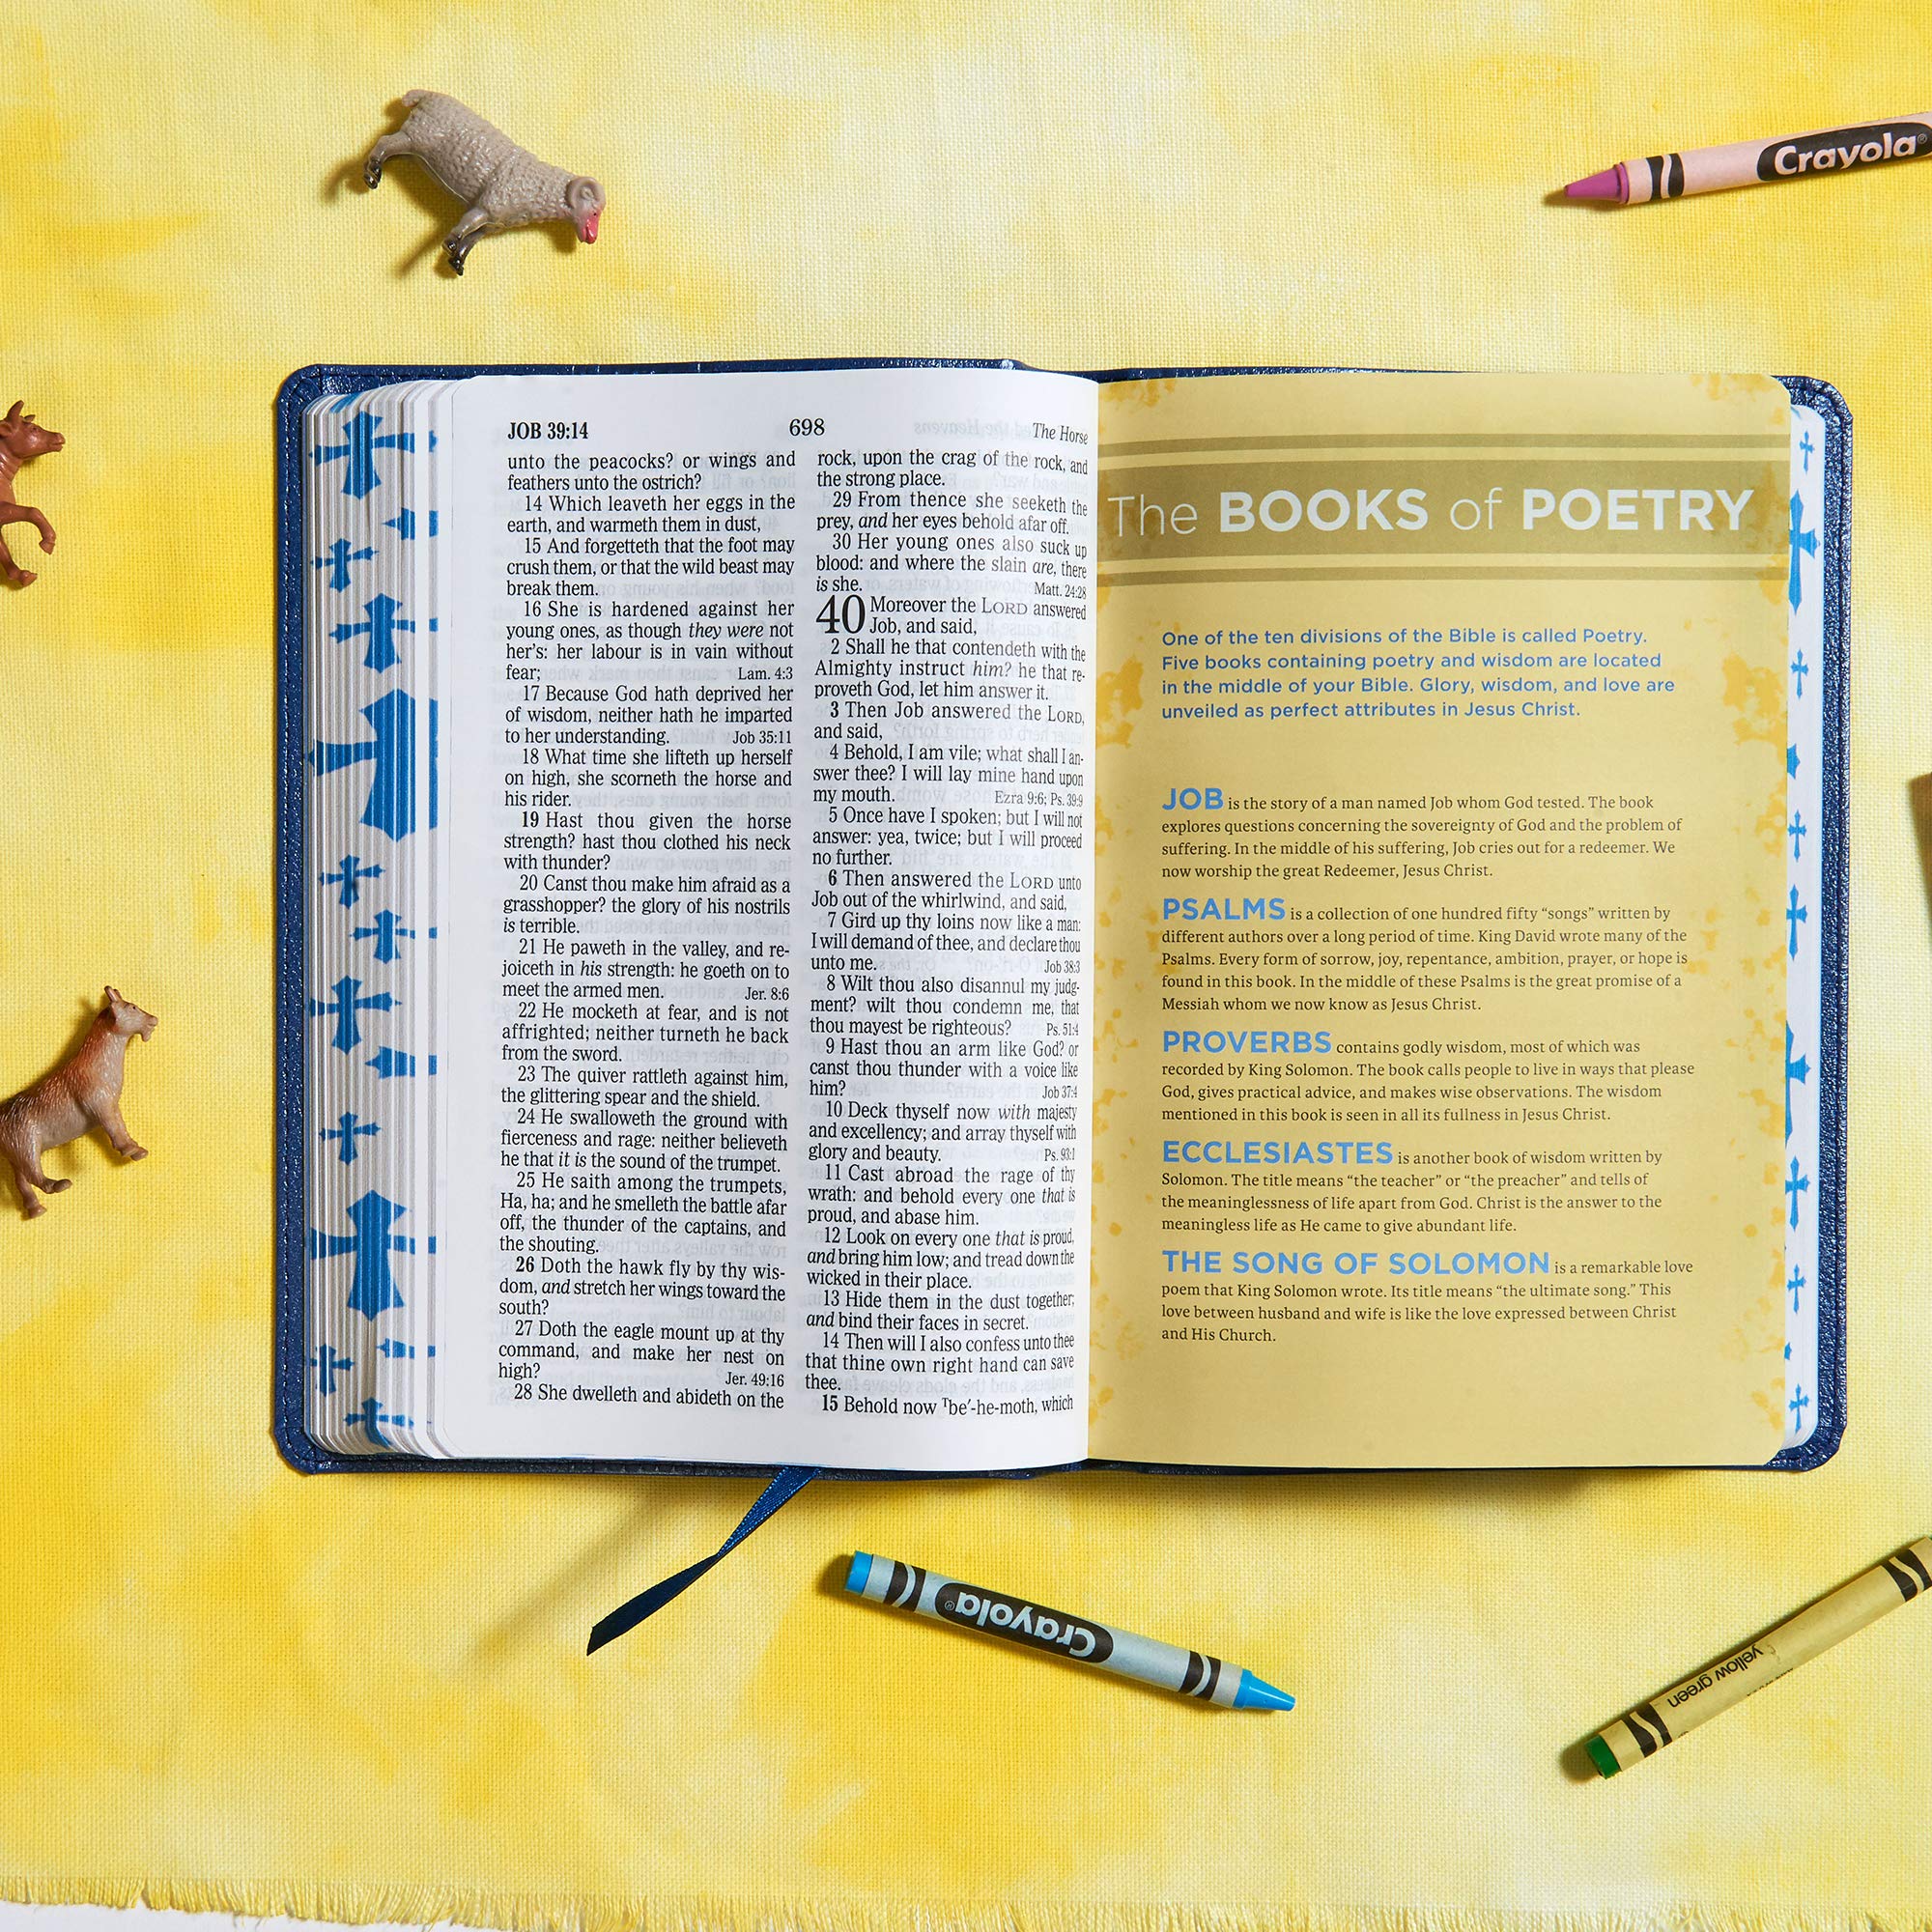 JOB 39:14
698
The Horse
unto the peacocks? or wings and
feathers unto the ostrich?
14 Which leaveth her eggs in the
earth, and warmeth them in dust,
15 And forgetteth that the foot may
crush them, or that the wild beast may
break them.
16 She is hardened against her
young ones, as though they were not
her's: her labour is in vain without
fear; Lam. 4:3
17 Because God hath deprived her
of wisdom, neither hath he imparted
to her understanding. Job 35:11
18 What time she lifteth up herself
on high, she scorneth the horse and
his rider.
19 Hast thou given the horse
strength? hast thou clothed his neck
with thunder?
20 Canst thou make him afraid as a
grasshopper? the glory of his nostrils
is terrible.
21 He paweth in the valley, and re-
joiceth in his strength: he goeth on to
meet the armed men. Jer. 8:6
22 He mocketh at fear, and is not
affrighted; neither turneth he back
from the sword.
23 The quiver rattleth against him,
the glittering spear and the shield.
24 He swalloweth the ground with
fierceness and rage: neither believeth
he that it is the sound of the trumpet.
25 He saith among the trumpets,
Ha, ha; and he smelleth the battle afar
off, the thunder of the captains, and
the shouting.
26 Doth the hawk fly by thy wis-
dom, and stretch her wings toward the
south?
27 Doth the eagle mount up at thy
command, and make her nest on
high? Jer. 49:16
28 She dwelleth and abideth on the
rock, upon the crag of the rock, and
the strong place.
29 From thence she seeketh the
prey, and her eyes behold afar off.
30 Her young ones also suck up
blood: and where the slain are, there
is she. Matt. 24:28
40 Moreover the LORD answered
Job, and said,
2 Shall he that contendeth with the
Almighty instruct him? he that re-
proveth God, let him answer it.
3 Then Job answered the LORD,
and said,
4 Behold, I am vile; what shall I an-
swer thee? I will lay mine hand upon
my mouth. Ezra 9:6; Ps. 39:9
5 Once have I spoken; but I will not
answer: yea, twice; but I will proceed
no further.
6 Then answered the LORD unto
Job out of the whirlwind, and said,
7 Gird up thy loins now like a man:
I will demand of thee, and declare thou
unto me. Job 38:3
8 Wilt thou also disannul my judg-
ment? wilt thou condemn me, that
thou mayest be righteous? Ps. 51:4
9 Hast thou an arm like God? or
canst thou thunder with a voice like
him? Job 37:4
10 Deck thyself now with majesty
and excellency; and array thyself with
glory and beauty. Ps. 93:1
11 Cast abroad the rage of thy
wrath: and behold every one that is
proud, and abase him.
12 Look on every one that is proud,
and bring him low; and tread down the
wicked in their place.
13 Hide them in the dust together;
and bind their faces in secret.
14 Then will I also confess unto thee
that thine own right hand can save
thee.
15 Behold now ᵀbe′-he-moth, which
The BOOKS of POETRY
One of the ten divisions of the Bible is called Poetry.
Five books containing poetry and wisdom are located
in the middle of your Bible. Glory, wisdom, and love are
unveiled as perfect attributes in Jesus Christ.
JOB is the story of a man named Job whom God tested. The book
explores questions concerning the sovereignty of God and the problem of
suffering. In the middle of his suffering, Job cries out for a redeemer. We
now worship the great Redeemer, Jesus Christ.
PSALMS is a collection of one hundred fifty “songs” written by
different authors over a long period of time. King David wrote many of the
Psalms. Every form of sorrow, joy, repentance, ambition, prayer, or hope is
found in this book. In the middle of these Psalms is the great promise of a
Messiah whom we now know as Jesus Christ.
PROVERBS contains godly wisdom, most of which was
recorded by King Solomon. The book calls people to live in ways that please
God, gives practical advice, and makes wise observations. The wisdom
mentioned in this book is seen in all its fullness in Jesus Christ.
ECCLESIASTES is another book of wisdom written by
Solomon. The title means “the teacher” or “the preacher” and tells of
the meaninglessness of life apart from God. Christ is the answer to the
meaningless life as He came to give abundant life.
THE SONG OF SOLOMON is a remarkable love
poem that King Solomon wrote. Its title means “the ultimate song.” This
love between husband and wife is like the love expressed between Christ
and His Church.
Crayola®
Crayola®
yellow green